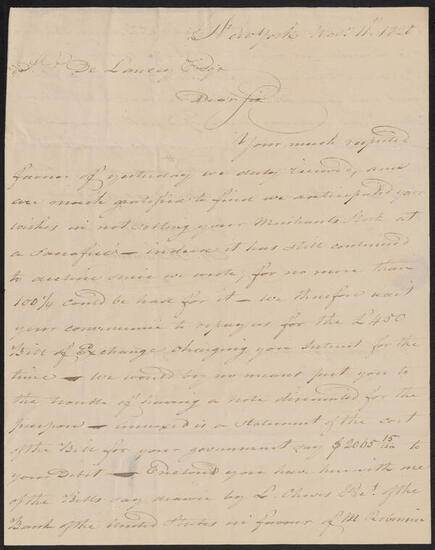 New York Nov. 11th. 1820
De Lancey Esqr
Dear Sir
Your much respected
favour of yesterday we duly received, and
are much gratified to find we anticipated your
wishes in not selling your Merchants Stock at
a Sacrafice — indeed it has still continued
to decline since we wrote, for no more than
100¼ could be had for it — We therefore wait
your convenience to repay us for the £450
Bill of Exchange charging you Interest for the
time — We would by no means put you to
the trouble of having a note discounted for the
purpose — annexed is a Statement of the cost
of the Bill for your government say $2065 15/100 to
your Debit — Enclosed you have herewith one
of the Bills say drawn by L. Cheves Prest. of the
Bank of the United States in favour of M Robinson